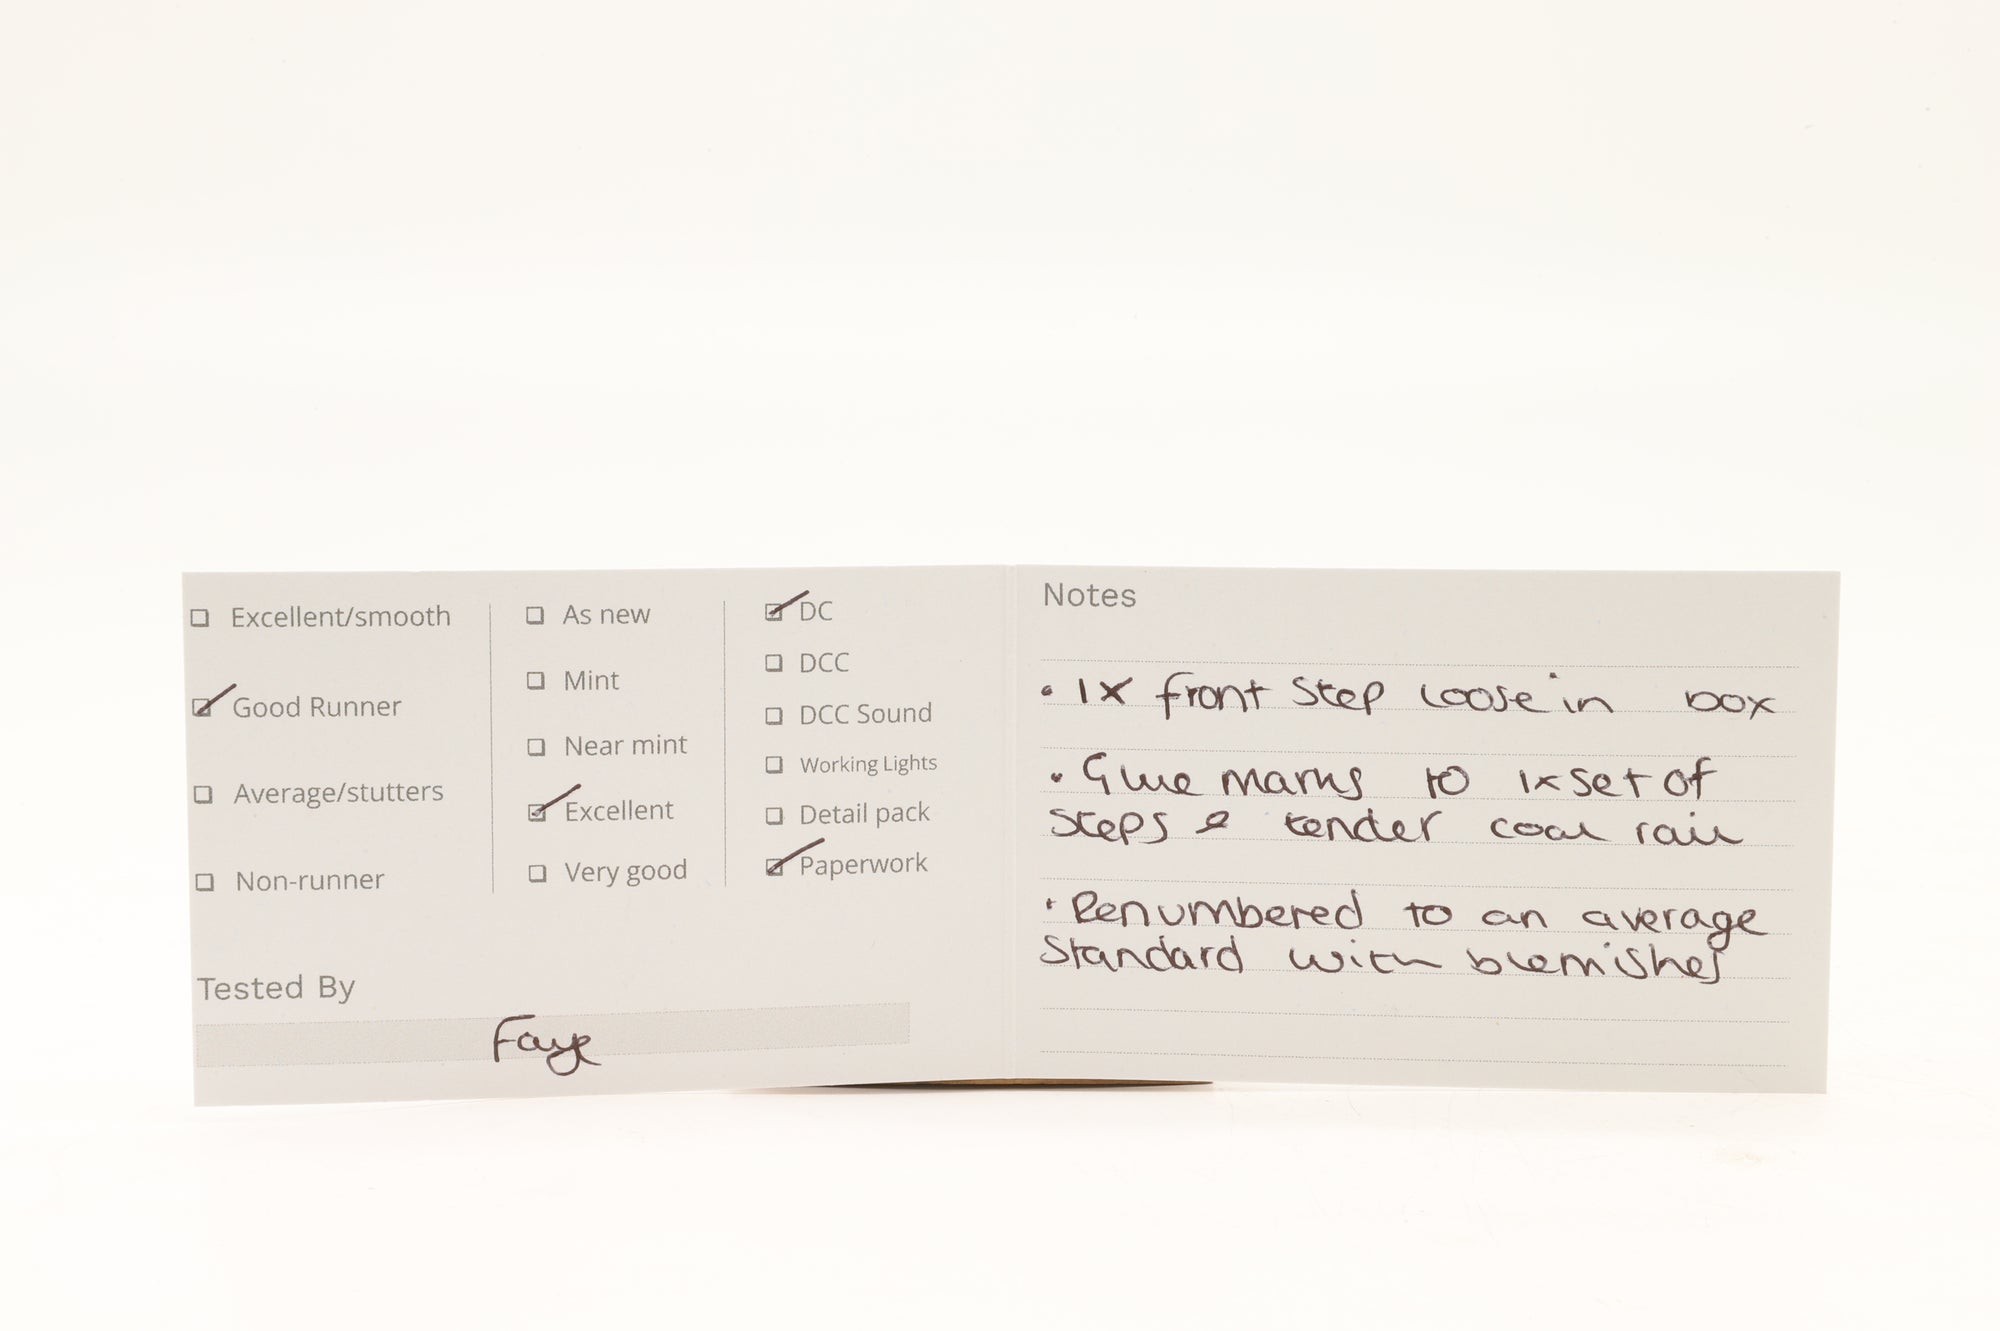 ☐ Excellent/smooth
☑ Good Runner
☐ Average/stutters
☐ Non-runner
☐ As new
☐ Mint
☐ Near mint
☑ Excellent
☐ Very good
☑ DC
☐ DCC
☐ DCC Sound
☐ Working Lights
☐ Detail pack
☑ Paperwork
Tested By
Faye
Notes
• 1x front step loose in box
• Glue marks to 1x set of
steps & tender coal rail
• Renumbered to an average
standard with blemishes